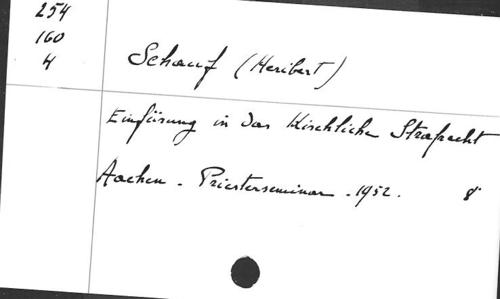 254
160
4
Schauf (Heribert)
Einfürung in das Kirchliche Strafrecht
Aachen - Priesterseminar - 1952. 8°